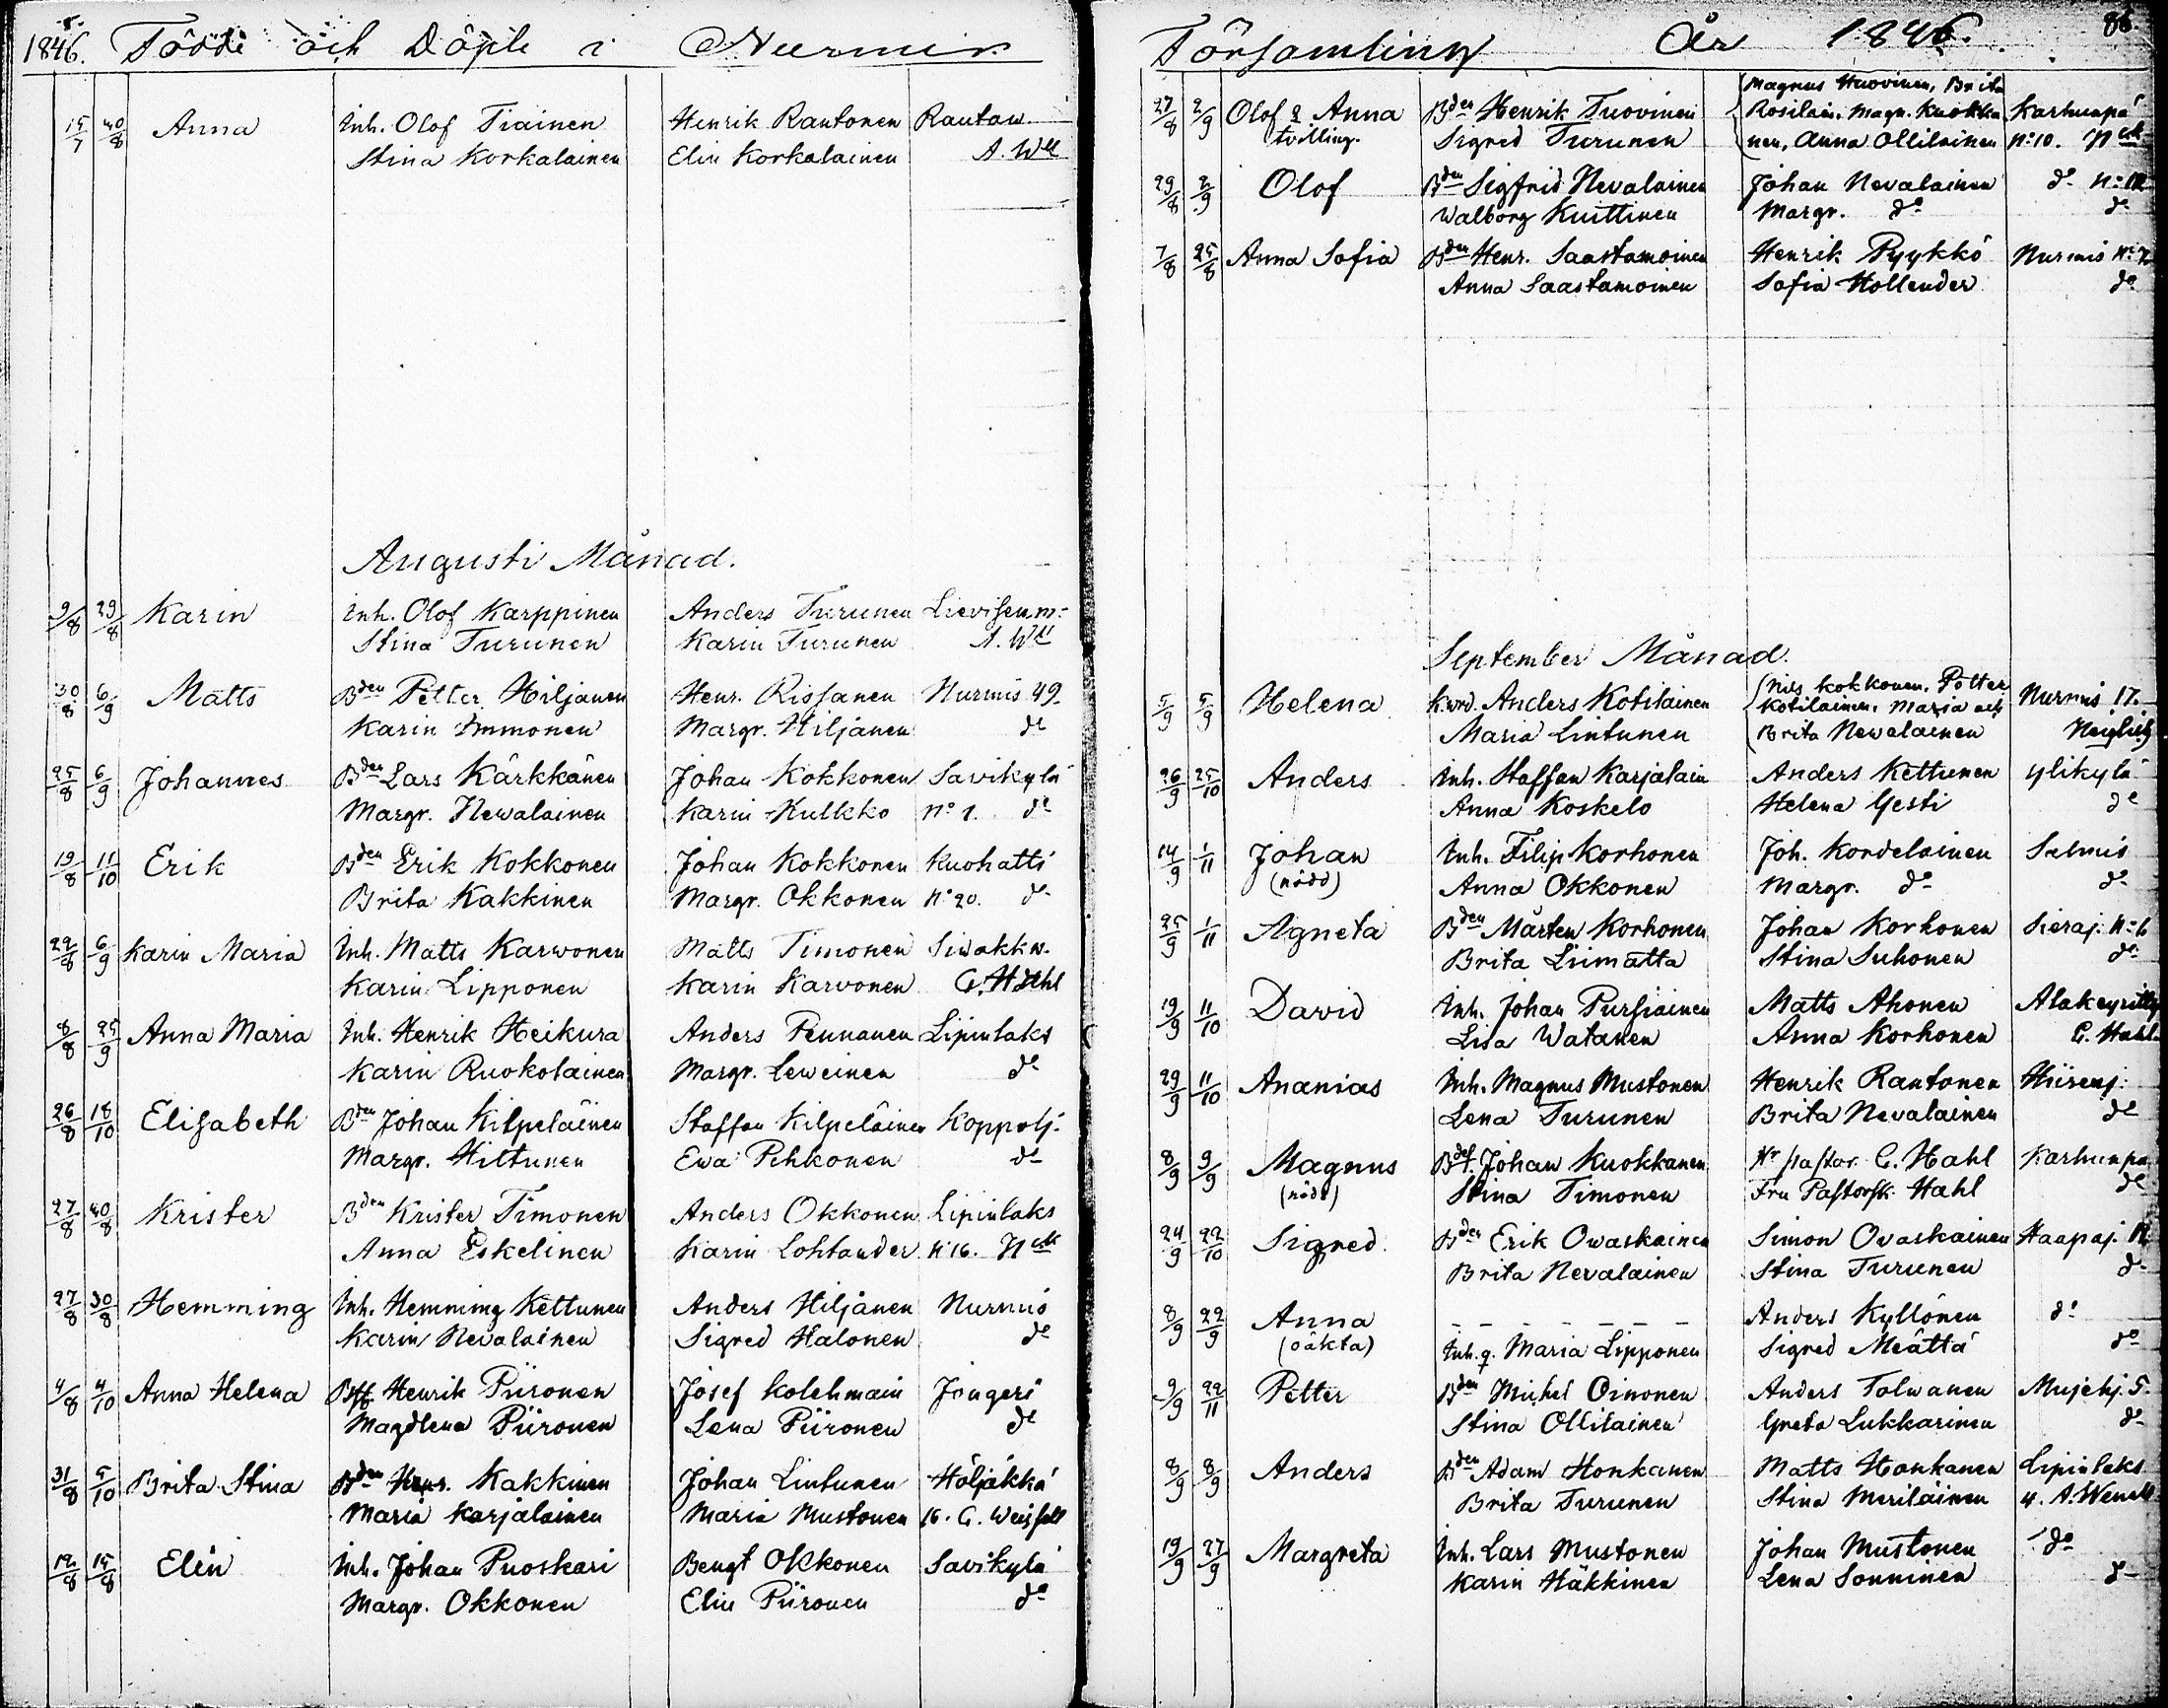 1846. Födde och Döpte i Nurmis
15/7 30/8 Anna Inh. Olof Tiainen Henrik Rautonen Rautaw.
Stina Korkalainen Elin Korkalainen A. Wll
Augusti Månad.
9/8 29/8 Karin Inh. Olof Karppinen Anders Turunen Lievisen.m:
Stina Turunen Karin Turunen A. Wll
30/8 6/9 Matts Bden Petter Hiljanen Henr. Rissanen Nurmis 49.
Karin Immonen Margr. Hiljanen do
25/8 6/9 Johannes Bden Lars Kärkkänen Johan Kokkonen Savikylä
Margr. Newalainen Karin Kulkko No 1. do
19/8 11/10 Erik Bden Erik Kokkonen Johan Kokkonen Kuohatti
Brita Kakkinen Margr. Okkonen No 20. do
22/8 6/9 Karin Maria Inh. Matts Karwonen Matts Timonen Siwakkw.
Karin Lipponen Karin Karvonen C. Hahl
8/8 25/9 Anna Maria Inh. Henrik Heikura Anders Pennanen Lipinlaks
Karin Ruokolainen Margr. Leweinen do
26/8 18/10 Elisabeth Bden Johan Kilpeläinen Staffan Kilpeläinen Koppolj.
Margr. Hiltunen Ewa Pehkonen do
27/8 30/8 Krister Bden Krister Timonen Anders Okkonen Lipinlaks
Anna Eskelinen Karin Lohlander N:16.
27/8 30/8 Hemming Inh. Hemming Kettunen Anders Hiljanen Nurmis
Karin Nevalainen Sigred Halonen do
4/8 4/10 Anna Helena Henrik Piironen Josef Kolehmain Jongeri
Magdlena Piironen Lena Piironen do
31/8 5/10 Brita Stina Bden Henr. Kakkinen Johan Lintunen Höljäkkä
Maria Karjalainen Maria Mustonen 16. C. Weisfell
12/8 15/8 Elin Inh. Johan Puoskari Bengt Okkonen Savikylä
Margr. Okkonen Elin Piironen do
Församling År 1846. 86.
27/8 2/9 Olof & Anna Bden Henrik Tuovinen Magnus Huovinen, Brita Rosilain. Magn. Kuokka Karhunpä
tvilling. Sigred Turunen nen, Anna Ollilainen No:10.
29/8 2/9 Olof Bden Sigfrid Nevalainen Johan Nevalainen do N:12
Walborg Kuittinen Margr. do do
7/8 25/8 Anna Sofia Bden Henr. Saastamoinen Henrik Pyykkö Nurmis N:7
Anna Saastamoinen Sofia Hollender do
September Månad.
5/9 5/9 Helena K.wrd. Anders Kotilainen Nils Kokkonen, Petter Kotilainen, Maria och Nurmis 17.
Maria Lintunen Brita Newalainen Neiglick
26/9 25/10 Anders Inh. Staffan Karjalain Anders Kettunen Ylikylä
Anna Koskelo Helena Gesti do
14/9 1/11 Johan Inh. Filip Korhonen Joh. Kordelainen Salmis
(nödd) Anna Okkonen Margr. do do
25/9 1/11 Agneta Bden Mårten Korhonen Johan Korhonen Sieraj. N:6
Brita Liimatta Stina Suhonen do
19/9 11/10 David Inh. Johan Pursiainen Matts Ahonen Alakeyritty
Lisa Watanen Anna Korhonen C. Hahl.
29/9 11/10 Ananias Inh. Magnus Mustonen Henrik Rantonen Hiirenj.
Lena Turunen Brita Nevalainen do
8/9 9/9 Magnus Johan Kuokkanen Hr Pastor C. Hahl Karhunpä
(nödd) Stina Timonen Fru Pastorsk. Hahl do
24/9 22/10 Sigred Bden Erik Owaskainen Simon Ovaskainen Haapaj. 12
Brita Nevalainen Stina Turunen do
8/9 22/9 Anna _ _ _ _ _ _ Anders Kyllönen do
(oäkta) Inh.q. Maria Lipponen Sigred Meättä do
9/9 22/11 Petter Bden Michel Oinonen Anders Tolwanen Mujehj. 5.
Stina Ollilainen Greta Lukkarinen do
8/9 8/9 Anders Bden Adam Honkanen Matts Honkanen Lipinlaks
Brita Turunen Stina Meriläinen 4. A. Wenell
19/9 27/9 Margreta Inh. Lars Mustonen Johan Mustonen do
Karin Häkkinen Lena Sonninen do